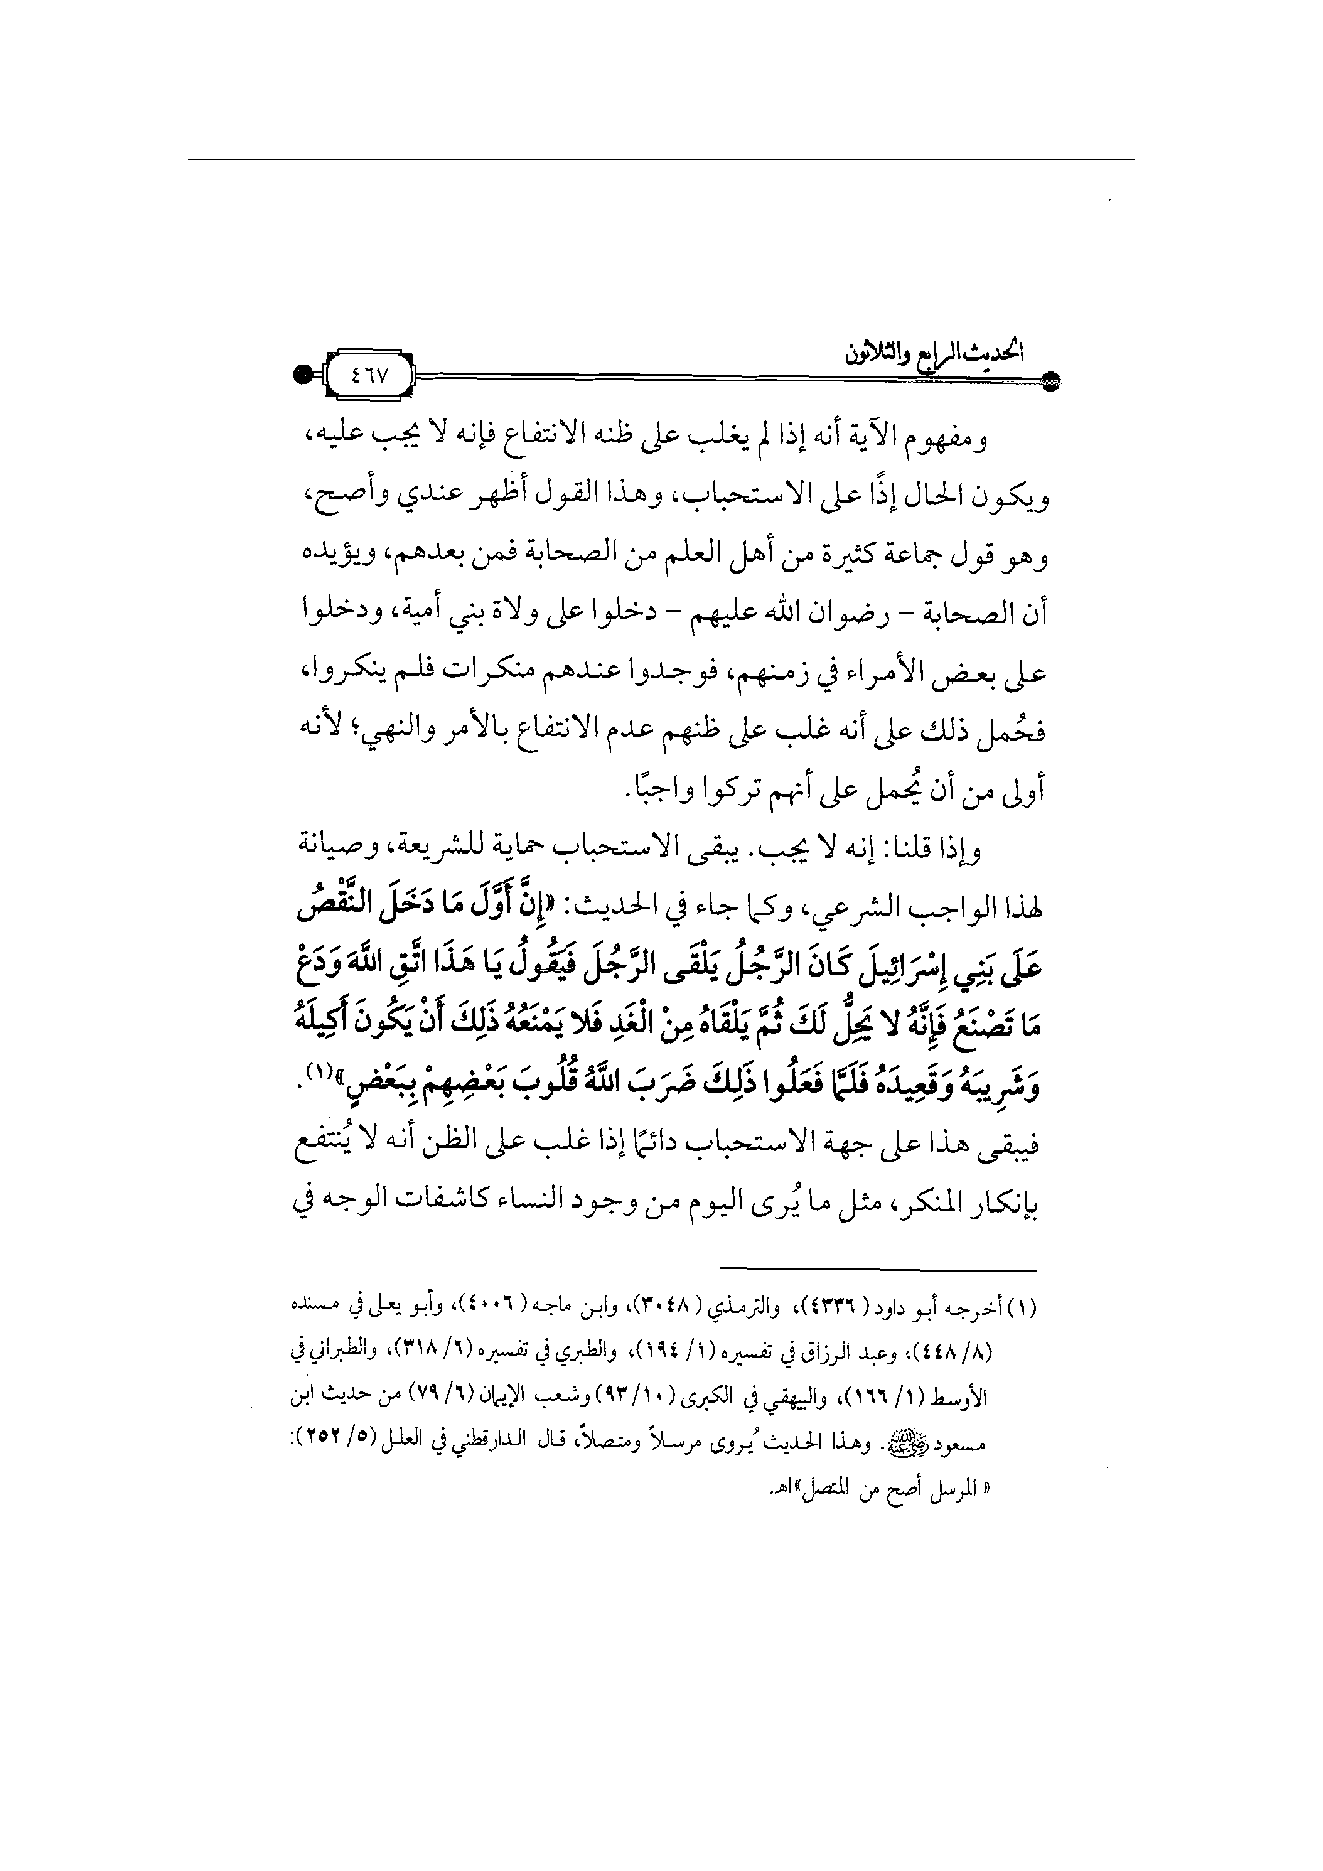 الحديث الرابع والثلاثون
٤٦٧
ومفهوم الآية أنه إذا لم يغلب على ظنه الانتفاع فإنه لا يجب عليه،
ويكون الحال إذًا على الاستحباب، وهذا القول أظهر عندي وأصح،
وهو قول جماعة كثيرة من أهل العلم من الصحابة فمن بعدهم، ويؤيده
أن الصحابة - رضوان الله عليهم - دخلوا على ولاة بني أمية، ودخلوا
على بعض الأمراء في زمنهم، فوجدوا عندهم منكرات فلم ينكروا،
فحُمل ذلك على أنه غلب على ظنهم عدم الانتفاع بالأمر والنهي؛ لأنه
أولى من أن يُحمل على أنهم تركوا واجبًا.
وإذا قلنا: إنه لا يجب. يبقى الاستحباب حماية للشريعة، وصيانة
لهذا الواجب الشرعي، وكما جاء في الحديث: «إِنَّ أَوَّلَ مَا دَخَلَ النَّقْصُ
عَلَى بَنِي إِسْرَائِيلَ كَانَ الرَّجُلُ يَلْقَى الرَّجُلَ فَيَقُولُ يَا هَذَا اتَّقِ اللَّهَ وَدَعْ
مَا تَصْنَعُ فَإِنَّهُ لا يَحِلُّ لَكَ ثُمَّ يَلْقَاهُ مِنْ الْغَدِ فَلا يَمْنَعُهُ ذَلِكَ أَنْ يَكُونَ أَكِيلَهُ
وَشَرِيبَهُ وَقَعِيدَهُ فَلَمَّا فَعَلُوا ذَلِكَ ضَرَبَ اللَّهُ قُلُوبَ بَعْضِهِمْ بِبَعْضٍ»(١).
فيبقى هذا على جهة الاستحباب دائمًا إذا غلب على الظن أنه لا يُنتفع
بإنكار المنكر، مثل ما يُرى اليوم من وجود النساء كاشفات الوجه في
(١) أخرجه أبو داود (٤٣٣٦)، والترمذي (٣٠٤٨)، وابن ماجه (٤٠٠٦)، وأبو يعلى في مسنده
(٨/ ٤٤٨)، وعبد الرزاق في تفسيره (١/ ١٩٤)، والطبري في تفسيره (٦/ ٣١٨)، والطبراني في
الأوسط (١/ ١٦٦)، والبيهقي في الكبرى (١٠/ ٩٣) وشعب الإيمان (٦/ ٧٩) من حديث ابن
مسعود رضي الله عنه. وهذا الحديث يُروى مرسلاً ومتصلاً، قال الدارقطني في العلل (٥/ ٢٥٢):
« المرسل أصح من المتصل»اهـ.